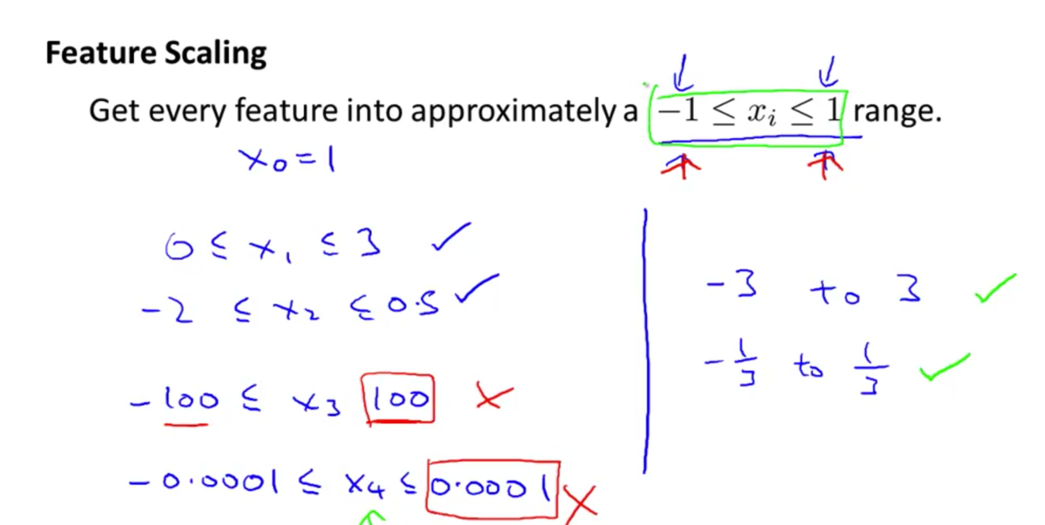 Feature Scaling
Get every feature into approximately a −1 ≤ xᵢ ≤ 1 range.
x₀ = 1
0 ≤ x₁ ≤ 3 ✓
-2 ≤ x₂ ≤ 0.5 ✓
-100 ≤ x₃ 100 ×
-0.0001 ≤ x₄ ≤ 0.0001 ×
-3 to 3 ✓
-1/3 to 1/3 ✓